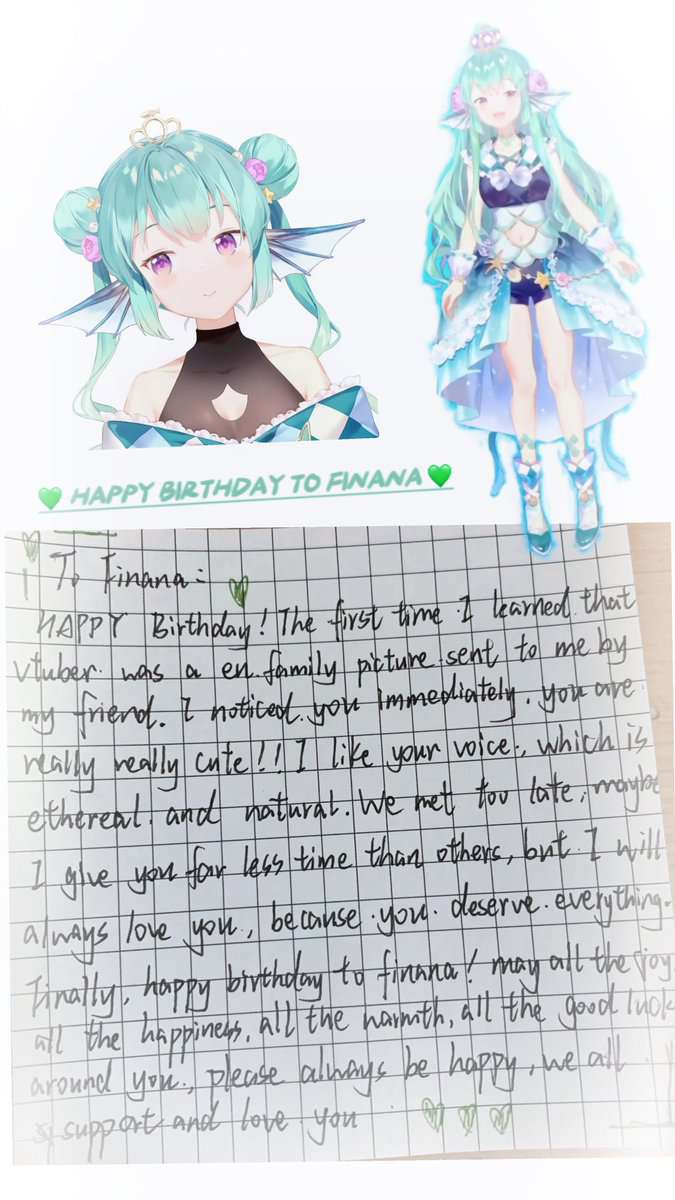 💚 HAPPY BIRTHDAY TO FINANA 💚
To Finana:
HAPPY Birthday! The first time I learned that
Vtuber was a en family picture sent to me by
my friend. I noticed you immediately. you are
really really cute!! I like your voice, which is
ethereal and natural. We met too late, maybe
I give you far less time than others, but I will
always love you, because you deserve everything.
Finally, happy birthday to finana! may all the joy
all the happiness, all the warmth, all the good luck
around you, please always be happy, we all
support and love you